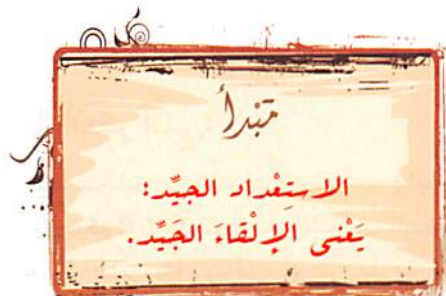 مَبْدأ
الاستِعْداد الجيِّد:
يَعْنى الإلْقاءَ الجَيِّد.